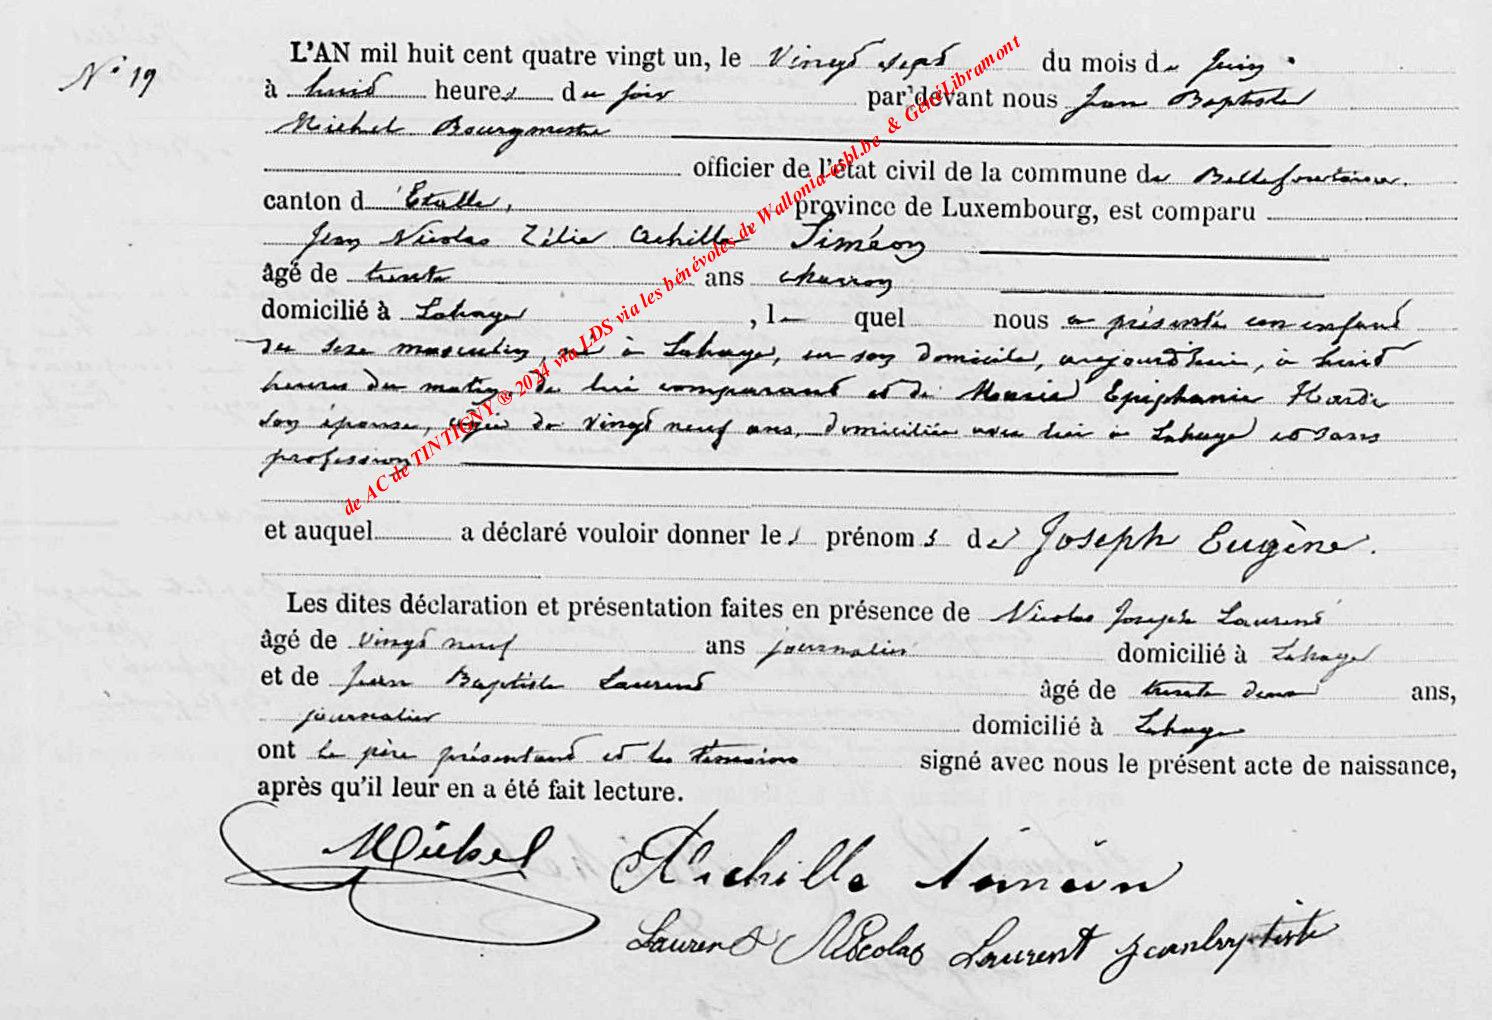 N° 19
L'AN mil huit cent quatre vingt un, le vingt sept du mois de Juin
à huit heures du soir par devant nous Jean Baptiste
Michel Bourgmestre
officier de l'état civil de la commune de Bellefontaine.
canton d'Etalle, province de Luxembourg, est comparu
Jean Nicolas Zélie Achille Siméon
âgé de trente ans charron
domicilié à Lahage, lequel nous a présenté un enfant
du sexe masculin, né à Lahage, en son domicile, aujourd'hui, à huit
heures du matin, de lui comparant et de Marie Epiphanie
son épouse, âgée de vingt neuf ans, domiciliée avec lui à Lahage et sans
profession
et auquel a déclaré vouloir donner les prénoms de Joseph Eugène.
Les dites déclaration et présentation faites en présence de Nicolas Joseph Laurent
âgé de vingt neuf ans journalier domicilié à Lahage
et de Jean Baptiste Laurent âgé de trente deux ans,
journalier domicilié à Lahage
ont le père présentant et les témoins signé avec nous le présent acte de naissance,
après qu'il leur en a été fait lecture.
Michel Achille Siméon
Laurent Nicolas Laurent Jeanbaptiste
de AC de TINTIGNY ® 2024 via LDS via les bénévoles de Wallonia-asbl.be & GenéLibramont